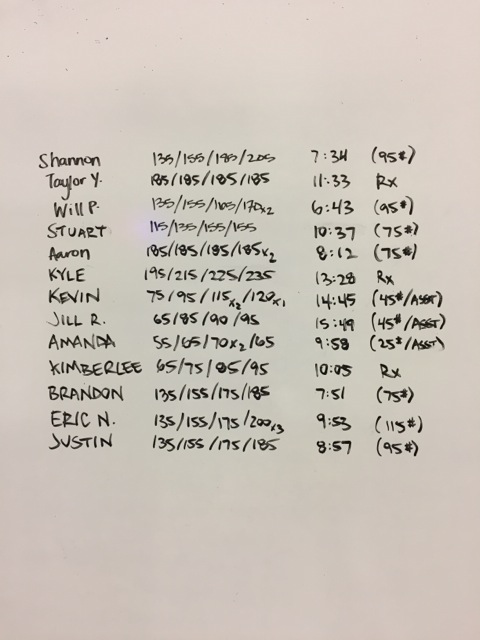 Shannon 135/155/185/205 7:34 (95#)
Taylor Y. 185/185/185/185 11:33 Rx
Will P. 135/155/165/170x2 6:43 (95#)
STUART 115/135/155/155 10:37 (75#)
Aaron 185/185/185/185x2 8:12 (75#)
KYLE 195/215/225/235 13:28 Rx
KEVIN 75/95/115x2/120x1 14:45 (45#/ASST)
JILL R. 65/85/90/95 15:49 (45#/ASST)
AMANDA 55/65/70x2/65 9:58 (25#/ASST)
KIMBERLEE 65/75/85/95 10:05 Rx
BRANDON 135/155/175/185 7:51 (75#)
ERIC N. 135/155/175/200x3 9:53 (115#)
JUSTIN 135/155/175/185 8:57 (95#)